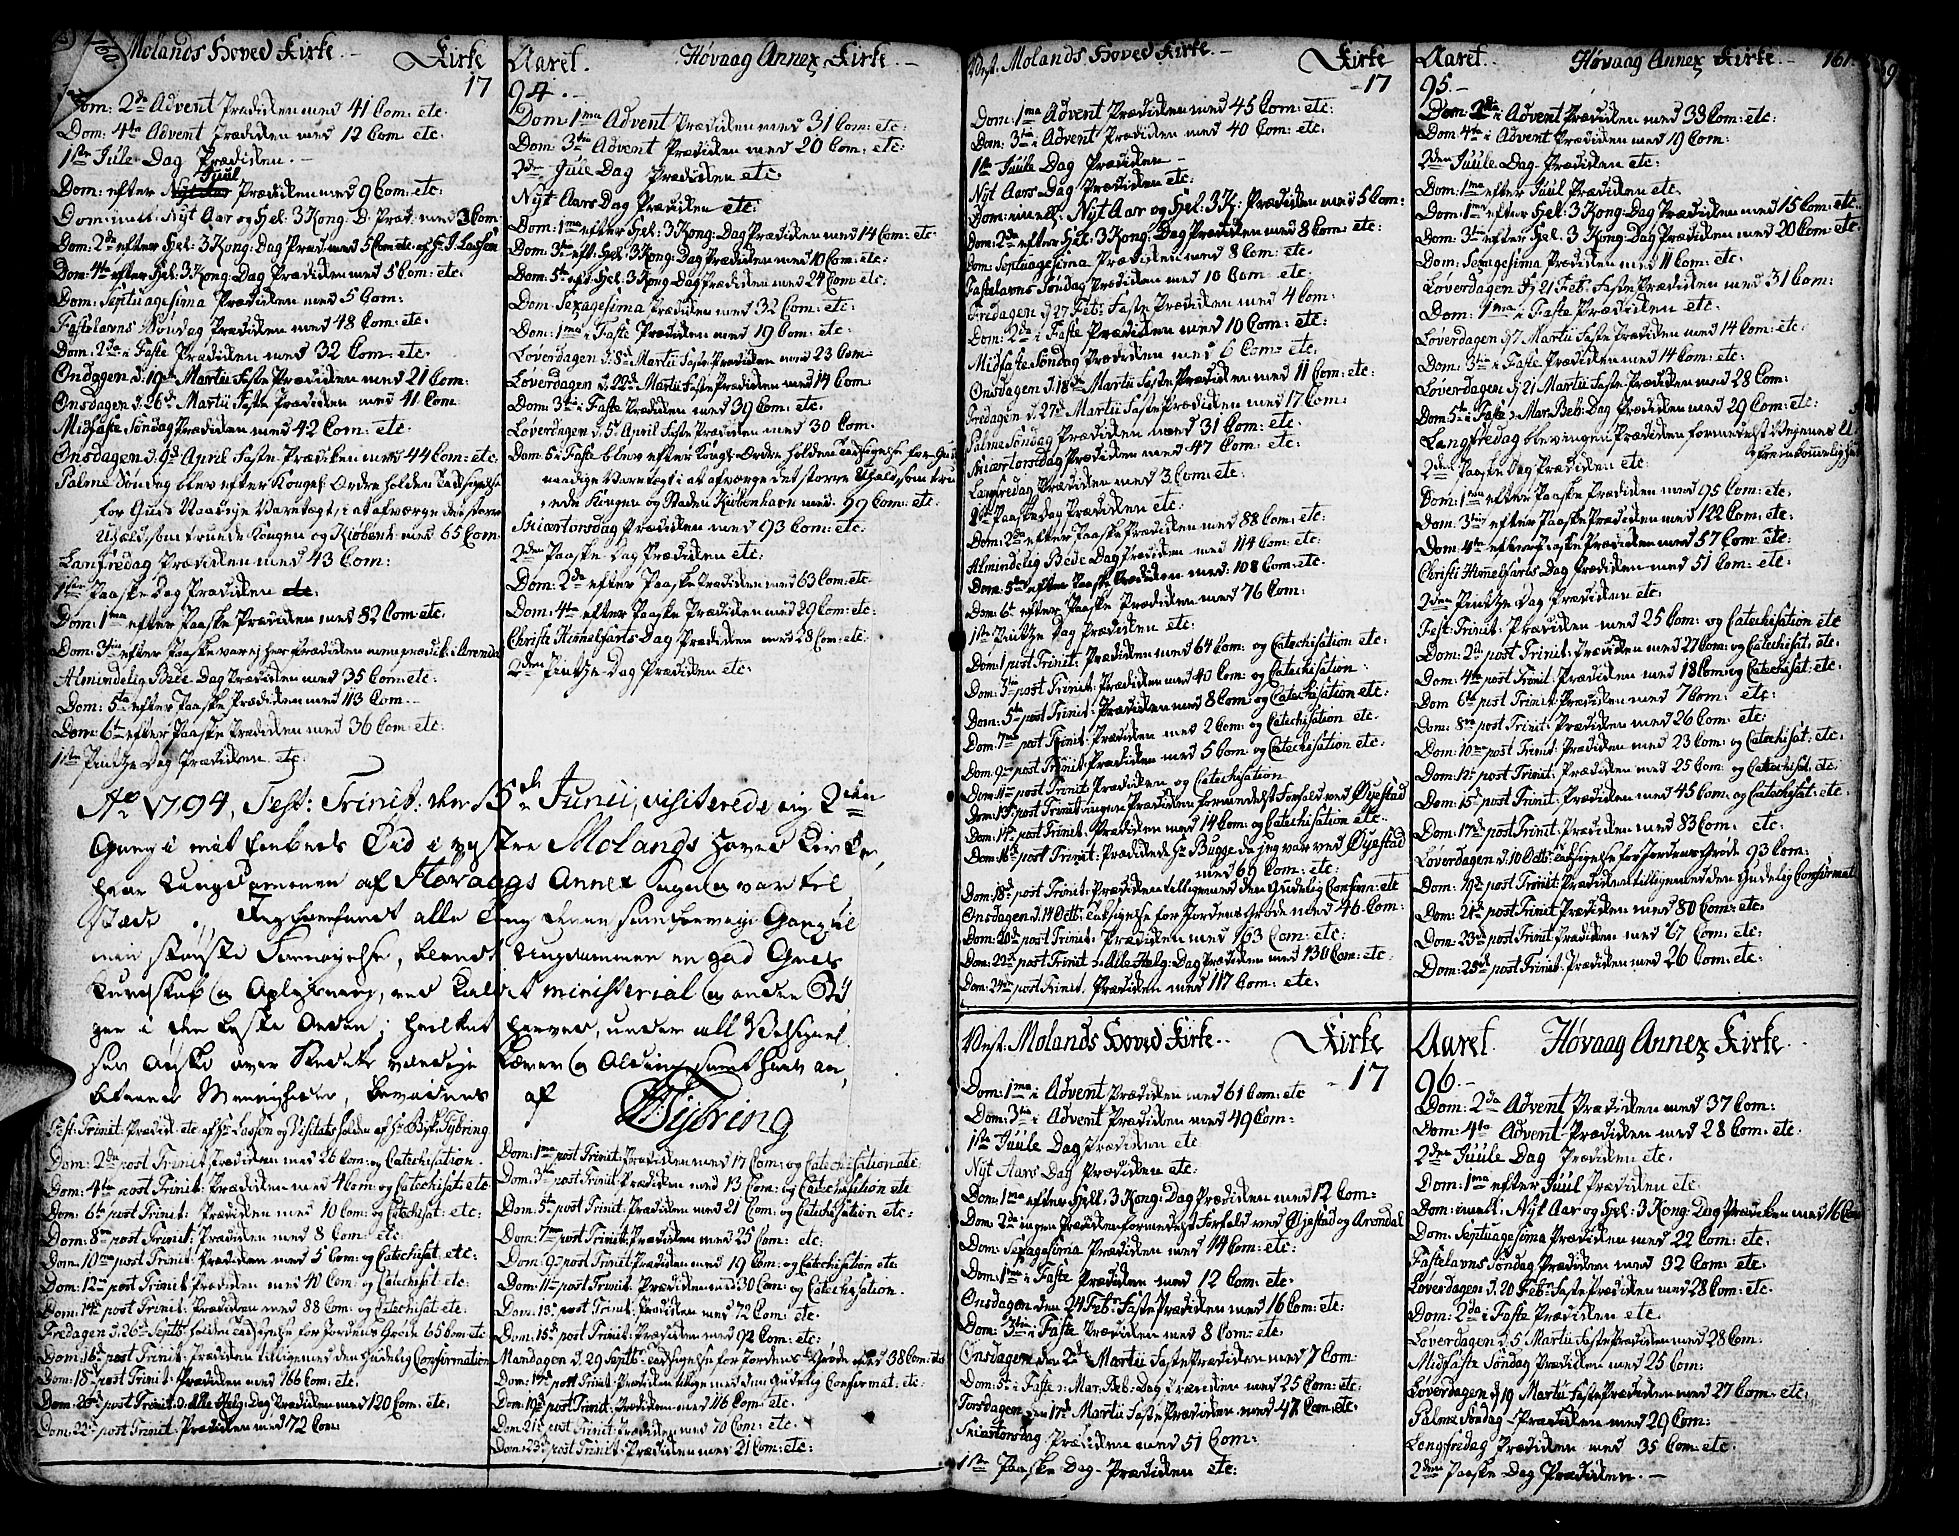 160.
Molands Hoved Kirke.
Kirke
17
Dom: 2da Advent Prædiken med 41 Com: etc
Dom: 4ta Advent Prædiken med 12 Com: etc.
1ste Jule Dag Prædiken.
Dom: efter Juul Prædiken med 9 Com: etc
Dom: imell: Nyt Aar og Hel: 3 Kong: D: Præd: med 3 Com:
Dom: 2da efter Hel: 3 Kong: Dag Præd: med 5 Com: etc. af Hr. J. Lassen
Dom: 4ta efter Hel: 3 Kong: Dag Prædiken med 5 Com: etc.
Dom: Septuagesima Prædiken med 5 Com:
Fastelavns Søndag Prædiken med 48 Com: etc.
Dom: 2da i Faste Prædiken med 32 Com: etc.
Onsdagen d. 19de Martii Faste Prædiken med 21 Com:
Onsdagen d. 26de Martii Faste Prædiken med 41 Com
Midfaste Søndag Prædiken med 42 Com: etc.
Onsdagen d. 9de April Faste Prædiken med 44 Com: etc.
Palme Søndag blev efter Kongel: Ordre holden Taksigelse
for Guds Naadige Varetægt, i at afværge den større
Uheld, som truede Kongen og Kiøbenh: med 65 Com:
Lanfredag Prædiken med 43 Com:
1ste Paaske Dag Prædiken etc.
Dom: 1ma efter Paaske Prædiken med 82 Com: etc.
Dom: 3tia efter Paaske var ej her Prædiken men prædik: i Arendal
Almindelig Bede Dag Prædiken med 35 Com: etc:
Dom: 5ta efter Paaske Prædiken med 113 Com.
Dom: 6ta efter Paaske Prædiken med 36 Com: etc:
1ste Pintze Dag Prædiken etc:
Aaret.
Høvaag Annex Kirke.
94.
Dom: 1ma Advent Prædiken med 31 Com: etc:
Dom: 3tia Advent Prædiken med 20 Com: etc:
2den Jule Dag Prædiken etc:
Nyt Aars Dag Prædiken etc:
Dom: 1ma efter Hel: 3 Kong: Dag Prædiken med 14 Com: etc
Dom: 3tia eft: Hel: 3 Kong: Dag Prædiken med 10 Com: etc:
Dom: 5ta eft: Hel: 3 Kong: Dag Prædiken med 24 Com: etc.
Dom: Sexagesima Prædiken med 32 Com: etc:
Dom: 1ma i Faste Prædiken med 19 Com: etc:
Løverdagen d. 8de Martii Faste Prædiken med 23 Com:
Løverdagen d. 22de Martii Faste Prædiken med 14 Com
Dom: 3tia i Faste Prædiken med 39 Com: etc.
Løverdagen d. 5te April Faste Prædiken med 30 Com:
Dom: 5 i Faste blev efter Kongl: Ordre holden Taksigelse for Guds
naadige Varetægt i at afværge det større Uheld, som tru
ede Kongen og Staden Kiøbenhavn med 99 Com: etc:
Skiærtorsdag Prædiken med 93 Com: etc:
2den Paaske Dag Prædiken etc:
Dom: 2da efter Paaske Prædiken med 63 Com: etc.
Dom: 4ta efter Paaske Prædiken med 29 Com: etc
Christi Himmelfarts Dag Prædiken med 28 Com: etc:
2den Pintze Dag Prædiken etc:
Ao 1794, Fest: Trinit: den 15de Junii, visiterede jeg 2den
Gang i mit Embeds Tid i vestre Molands Hoved Kirke,
hvor Ungdommen af Høvaags Annex Sogn og var til
stæde. Jeg
min største Fornøyelse, blandt Ungdommen en god Guds
Kundskab og Oplysning, ved Kald, ministerial og andre Bø
ger i den beste Orden;
af
Tybring
Fest: Trinit: Prædik: etc. af Hr. Lassen og Visitats holden af Hr. Bisk: Tybring
Dom: 2da post Trinit: Prædiken med 26 Com: og Catechisation.
Dom: 4ta post Trinit: Prædiken med 4 Com: og Catechisat: etc
Dom: 6ta post Trinit: Prædiken med 10 Com: og Catechisat: etc:
Dom: 8va post Trinit: Prædiken med 8 Com: etc:
Dom: 10ma post Trinit: Prædiken med 5 Com: og Catechisat: etc:
Dom: 12ma post Trinit: Prædiken med 40 Com: og Catechisat: etc.
Dom: 14de post Trinit: Prædiken med 88 Com: og Catechisat: etc:
Fredagen d. 26de Septbr: holden Taksigelse for Jordens Grøde 65 Com: etc
Dom: 16de post Trinit: Prædiken tilligemed den Gudelig Confirmation
Dom: 18de post Trinit: Prædiken med 166 Com: etc.
Dom: 20de post Trinit: o: Alle Helg: Dag Prædiken med 120 Com: etc.
Dom: 22de post Trinit: Prædiken med 72 Com:
Dom: 1ma post Trinit: Prædiken med 17 Com: og Catechisation etc
Dom: 3tia post Trinit: Prædiken med 13 Com: og Catechisation etc
Dom: 5ta post Trinit: Prædiken med 21 Com: og Catechisation etc:
Dom: 7ma post Trinit: Prædiken med 25 Com: etc:
Dom: 9na post Trinit: Prædiken med 19 Com: og Catechisation etc:
Dom: 11te post Trinit: Prædiken med 30 Com: og Catechisation.
Dom: 13de post Trinit: Prædiken med 72 Com: etc.
Dom: 15de post Trinit: Prædiken med 92 Com: etc:
Mandagen d. 29 Septbr: Taksigelse for Jordens Grøde med 38 Com: etc
Dom: 17de post Trinit: Prædiken tillige med den Gudelig Confirmat: etc:
Dom: 19de post Trinit: Prædiken med 116 Com: etc:
Dom: 21de post Trinit: Prædiken med 70 Com: etc:
Dom: 23de post Trinit: Prædiken med 21 Com: etc:
Vest: Molands Hoved Kirke.
Kirke
17
Dom: 1ma Advent Prædiken med 45 Com: etc:
Dom: 3tia i Advent Prædiken med 40 Com: etc:
1ste Juule Dag Prædiken
Nyt Aars Dag Prædiken etc:
Dom: imell: Nyt Aar og Hel: 3 K: Prædiken med 5 Com:
Dom: 2da efter Hel: 3 Kong: Dag Prædiken med 8 Com: etc:
Dom: Septuagesima Prædiken med 8 Com: etc:
Fastelavns Søndag Prædiken med 10 Com: etc:
Fredagen d. 27 Feb: Faste Prædiken med 4 Com:
Dom: 2da i Faste Prædiken med 10 Com: etc:
Midfaste Søndag Prædiken med 6 Com: etc:
Onsdagen d. 18de Martii Faste Prædiken med 11 Com: etc:
Fredagen d. 27de Martii Faste Prædiken med 17 Com:
Palme Søndag Prædiken med 31 Com: etc:
Skiærtorsdag Prædiken med 47 Com: etc:
Lanfredag Prædiken med 3 Com: etc:
1ste Paaske Dag Prædiken etc:
Dom: 2da efter Paaske Prædiken med 88 Com: etc:
Almindelig Bede Dag Prædiken med 114 Com: etc:
Dom: 5ta efter Paaske Prædiken med 108 Com: etc:
Dom: 6t efter Paaske Prædiken med 76 Com:
1ste Pintze Dag Prædiken etc:
Dom: 1 post Trinit: Prædiken med 64 Com: og Catechisation etc
Dom: 3tia post Trinit: Prædiken med 40 Com: og Catechisation
Dom: 5ta post Trinit: Prædiken med 8 Com: og Catechisation etc:
Dom: 7ma post Trinit: Prædiken med 2 Com: og Catechisation etc:
Dom: 9na post Trinit: Prædiken med 5 Com: og Catechisation etc:
Dom: 11te post Trinit: Prædiken og Catechisation
Dom: 13de post Trinit: ingen Prædiken formedelst Forfald ved Øyestad
Dom: 14de post Trinit: Prædiken med 14 Com: og Catechisation etc.
Dom: 16de post Trinit: Prædikede Hr. Bugge da jeg var ved Øyestad
med 69 Com: etc:
Dom: 18de post Trinit: Prædiken tilligemed den Gudelig Confirm: etc
Onsdagen d. 14 Octbr: Taksigelse for Jordens Grøde med 46 Com:
Dom: 20de post Trinit: Prædiken med 163 Com: etc:
Dom: 22de post Trinit: o: Alle Helg: Dag Prædiken med 130 Com: etc:
Dom: 24de post Trinit: Prædiken med 117 Com: etc:
Aaret.
Høvaag Annex Kirke.
161.
95.
Dom: 2da i Advent Prædiken med 33 Com: etc:
Dom: 4ta i Advent Prædiken med 19 Com:
2den Juule Dag Prædiken etc:
Dom: 1ma efter Juul Prædiken etc.
Dom: 1ma efter Hel: 3 Kong: Dag Prædiken med 15 Com: etc.
Dom: 3tia efter Hel: 3 Kong: Dag Prædiken med 20 Com: etc.
Dom: Sexagesima Prædiken med 11 Com: etc:
Løverdagen d. 21 Feb: Faste Prædiken med 31 Com:
Dom: 1ma i Faste Prædiken etc:
Løverdagen d. 7 Martii Faste Prædiken med 14 Com: etc:
Dom: 3tia i Faste Prædiken med 14 Com: etc:
Løverdagen d. 21 Martii Faste Prædiken med 28 Com:
Dom: 5ta i Faste o: Mar: Beb: Dag Prædiken med 29 Com: etc:
Langfredag blev ingen Prædiken formedelst Vejenes U
fremkommelighed
2den Paaske Dag Prædiken etc:
Dom: 1ma efter Paaske Prædiken med 95 Com: etc:
Dom: 3tia efter Paaske Prædiken med 122 Com: etc:
Dom: 4ta efter Paaske Prædiken med 57 Com: etc:
Christi Himmelfarts Dag Prædiken med 51 Com: etc:
2den Pintze Dag Prædiken etc:
Fest: Trinit: Prædiken med 25 Com: og Catechisation etc
Dom: 2da post Trinit: Prædiken med 27 Com: og Catechisat: etc:
Dom: 4ta post Trinit: Prædiken med 18 Com: og Catechisat: etc:
Dom: 6ta post Trinit: Prædiken med 7 Com: etc:
Dom: 8va post Trinit: Prædiken med 26 Com: etc:
Dom: 10ma post Trinit: Prædiken med 23 Com: og Catechisat: etc:
Dom: 12te post Trinit: Prædiken med 25 Com: og Catechisat: etc:
Dom: 15de post Trinit: Prædiken med 45 Com: og Catechisat: etc:
Dom: 17de post Trinit: Prædiken med 83 Com: etc:
Løverdagen d. 10 Octbr: Taksigelse for Jordens Grøde 93 Com:
Dom: 19de post Trinit: Prædiken tilligemed den Gudelig Confirmat:
Dom: 21de post Trinit: Prædiken med 80 Com: etc:
Dom: 23de post Trinit: Prædiken med 67 Com: etc:
Dom: 25de post Trinit: Prædiken med 26 Com: etc:
Vest: Molands Hoved Kirke.
Kirke
17
Dom: 1ma i Advent Prædiken med 61 Com: etc
Dom: 3tia i Advent Prædiken med 49 Com:
1ste Juule Dag Prædiken etc
Nyt Aars Dag Prædiken etc:
Dom: 1ma efter Hell: 3 Kong: Dag Prædiken med 12 Com:
Dom: 2da ingen Prædiken formedelst Forfald ved Øjestad og Arendal
Dom: Sexagesima Prædiken med 14 Com: etc:
Dom: 1ma i Faste Prædiken med 12 Com: etc:
Onsdagen den 24 Febr: Faste Prædiken med 16 Com: etc:
Dom: 3tia i Faste Prædiken med 8 Com: etc:
Onsdagen den 2de Martii Faste Prædiken med 7 Com:
Dom: 5ta i Faste o: Mar: Beb: Dag Prædiken med 25 Com: etc:
Torsdagen den 17de Martii Faste Prædiken med 47 Com: etc:
Skiærtorsdag Prædiken med 51 Com:
1ste Paaske Dag Prædiken etc:
Aaret.
Høvaag Annex Kirke.
96.
Dom: 2da Advent Prædiken med 37 Com:
Dom: 4ta Advent Prædiken med 28 Com: etc:
2den Juule Dag Prædiken etc.
Dom: 1ma efter Juul Prædiken etc
Dom: imell: Nyt Aar og Hel: 3 Kong: Dag Prædiken med 16 Com
Dom: Septuagesima Prædiken med 22 Com: etc:
Fastelavns Søndag Prædiken med 32 Com: etc:
Løverdagen d. 20 Febr: Faste Prædiken med 28 Com: etc:
Dom: 2da i Faste Prædiken etc:
Løverdagen d. 5 Martii Faste Prædiken med 28 Com:
Midfaste Søndag Prædiken med 25 Com:
Løverdagen d. 19 Martii Faste Prædiken med 27 Com: etc:
Palme Søndag Prædiken med 29 Com:
Langfredag Prædiken med 35 Com: etc:
2den Paaske Dag Prædiken.